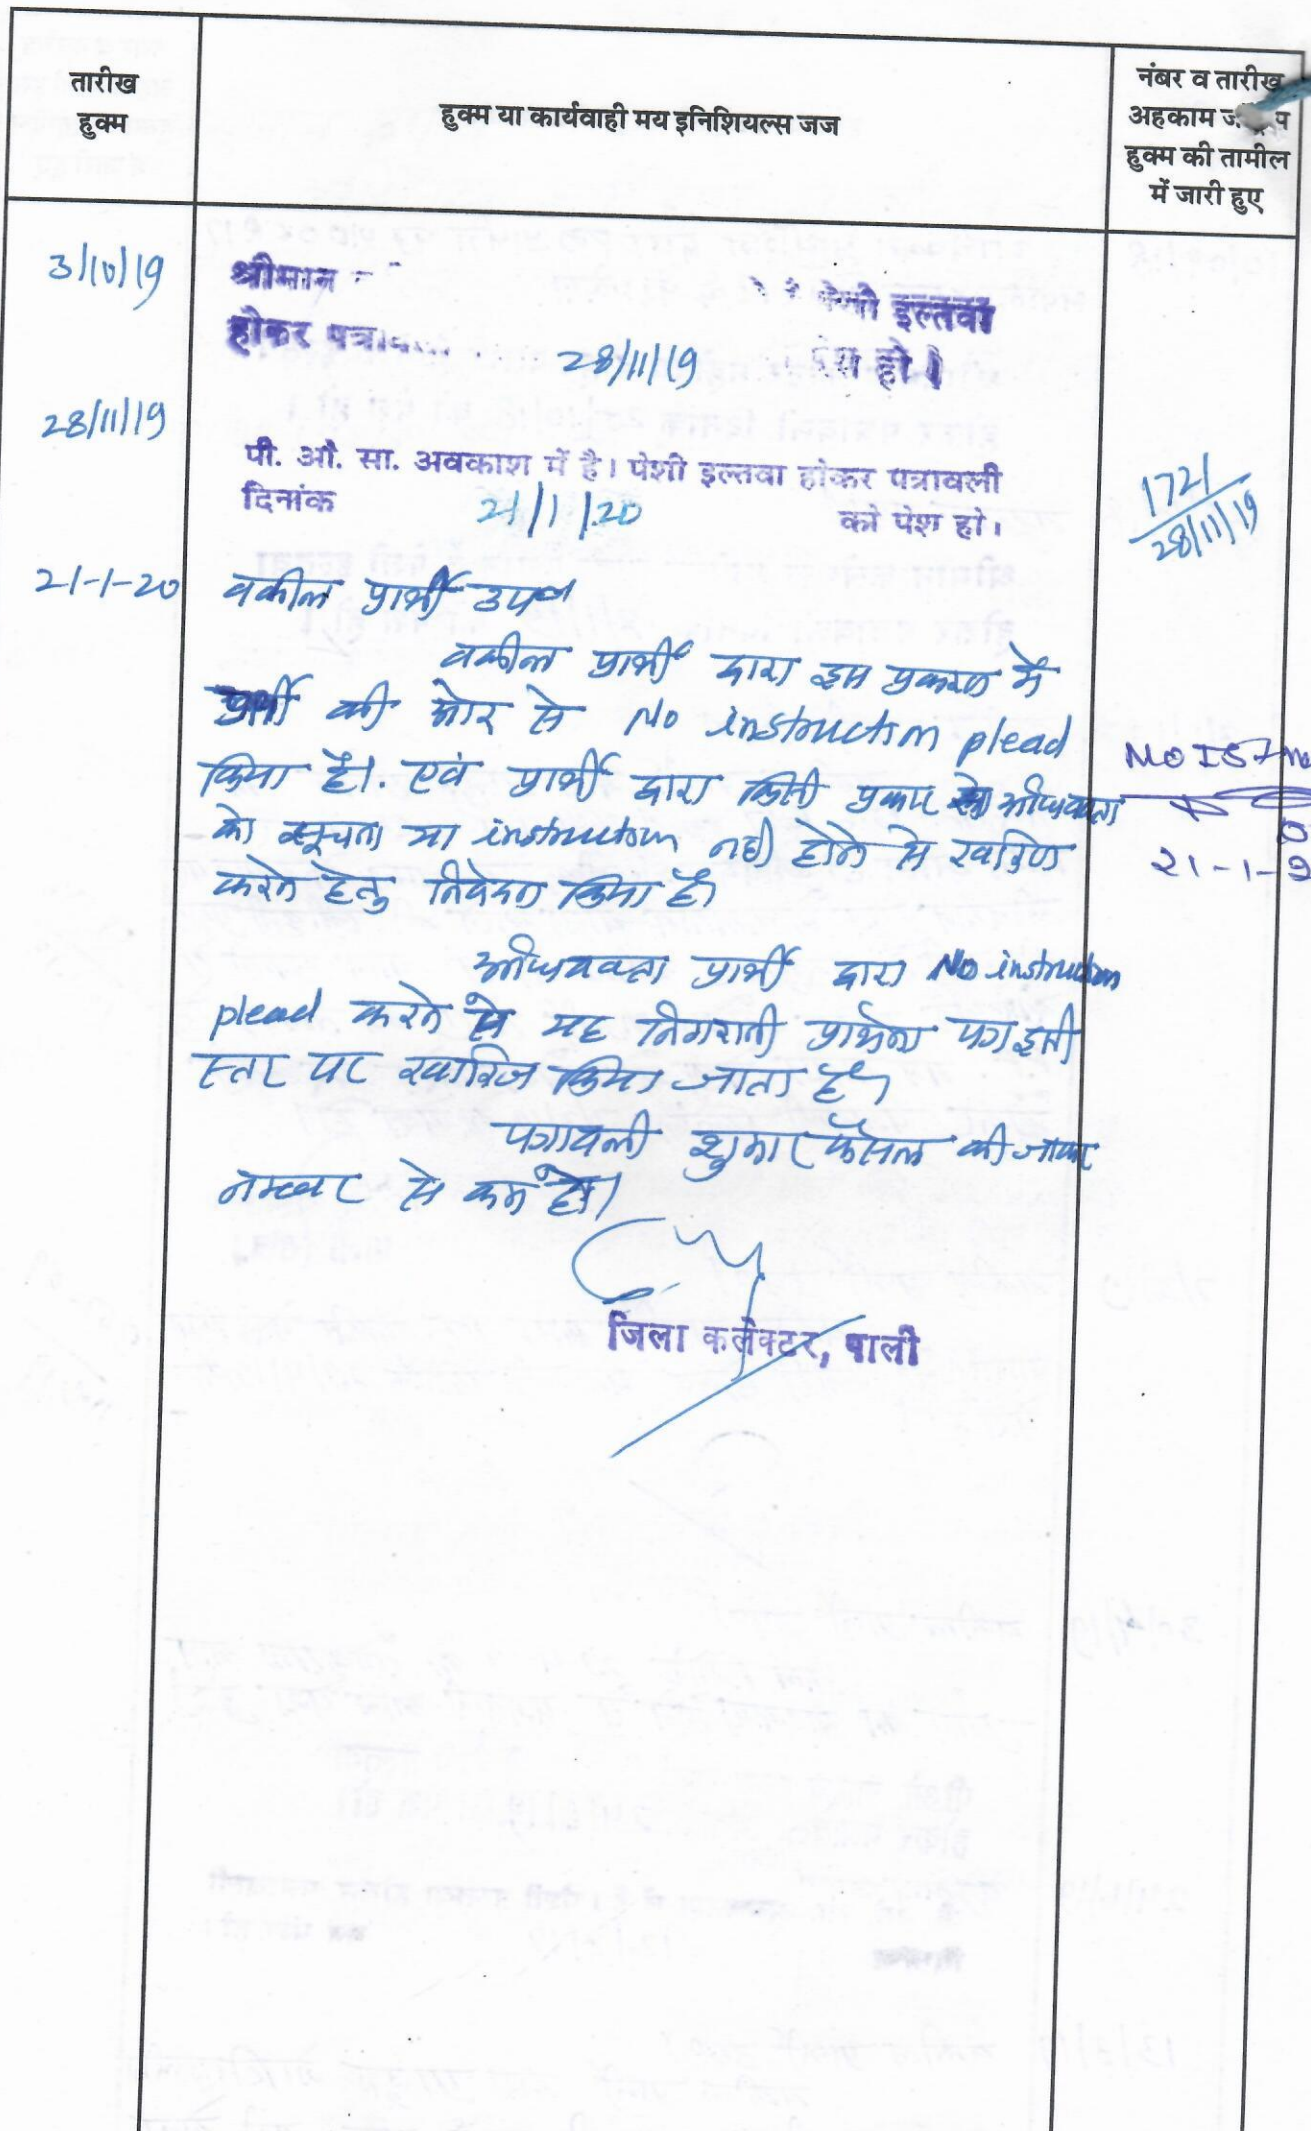 तारीख
हुक्म
हुक्म या कार्यवाही मय इनिशियल्स जज
नंबर व तारीख
अहकाम
हुक्म की तामील
में जारी हुए
3/10/19
श्रीमान पेशी इल्तवा
होकर 28/11/19 हो।
28/11/19
पी. औ. सा. अवकाश में है। पेशी इल्तवा होकर पत्रावली
दिनांक 21/1/20 को पेश हो।
1721
28/11/19
21-1-20 वकील प्रार्थी उप०
वकील प्रार्थी द्वारा इस प्रकरण में
प्रार्थी की ओर से No instruction plead
किया है। एवं प्रार्थी द्वारा किसी प्रकार से अधिवक्ता
को सूचना या instruction नही होने से खारिज
करने हेतु निवेदन किया है।
21-1-2
अधिवक्ता प्रार्थी द्वारा No instruction
plead करने से यह निगरानी प्रार्थना पत्र इसी
स्तर पर खारिज किया जाता है।
पत्रावली शुमार फैसल की जाकर
नम्बर से कम हो।
जिला कलेक्टर, पाली